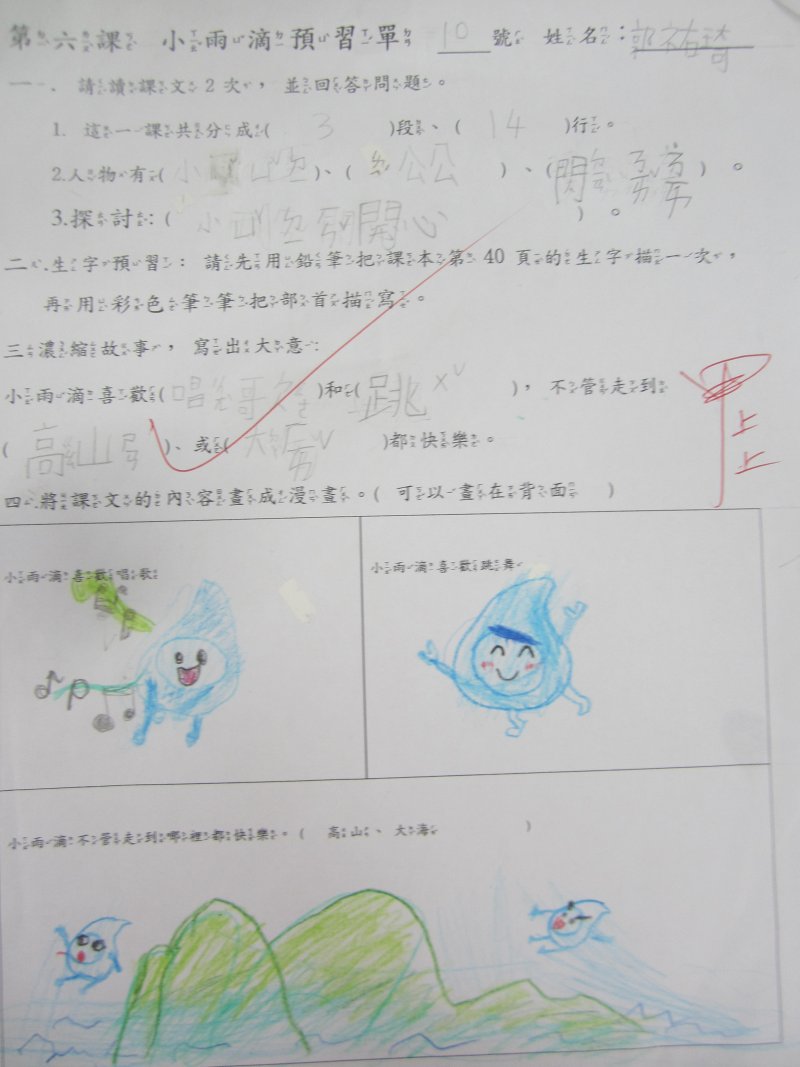 第六課 小雨滴預習單 10 號 姓名:郭祐琦
一、請讀課文2次,並回答問題。
1. 這一課共分成( 3 )段、( 14 )行。
2.人物有:(小 )、( 公公 )、(閃 )。
3.探討:(小 開心 )。
二、生字預習:請先用鉛筆把課本第40頁的生字描一次,
再用彩色筆筆把部首描寫。
三、濃縮故事,寫出大意:
小雨滴喜歡(唱ㄔㄤˋ哥 )和(跳ㄨˇ ),不管走到
(高山 )、或(大ㄏㄞˇ )都快樂。
上
上
四、將課文的內容畫成漫畫。( 可以畫在背面 )
小雨滴喜歡唱歌
小雨滴喜歡跳舞
小雨滴不管走到哪裡都快樂。( 高山、大海 )